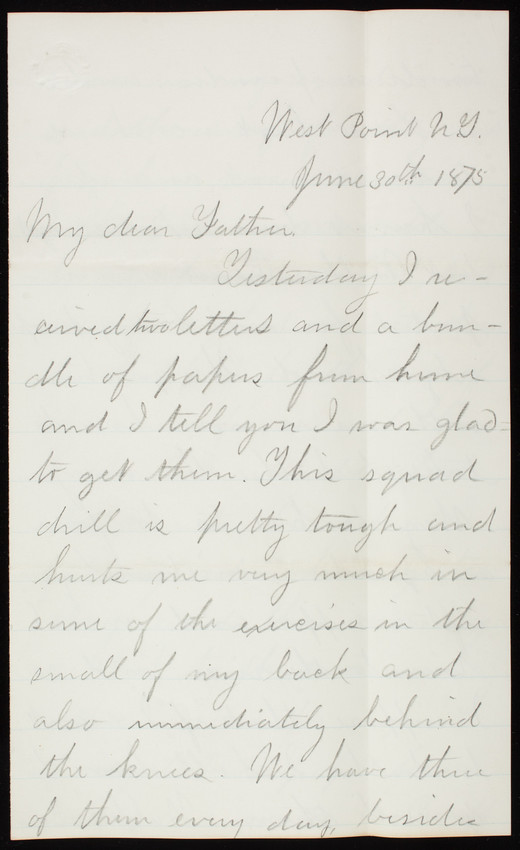 West Point N.Y.
June 30th 1875
My dear Father.
Yesterday I re-
ceived two letters and a bun-
dle of papers from home
and I tell you I was glad
to get them. This squad
drill is pretty tough and
hurts me very much in
some of the exercises in the
small of my back and
also immediately behind
the knees. We have three
of them every day, besides